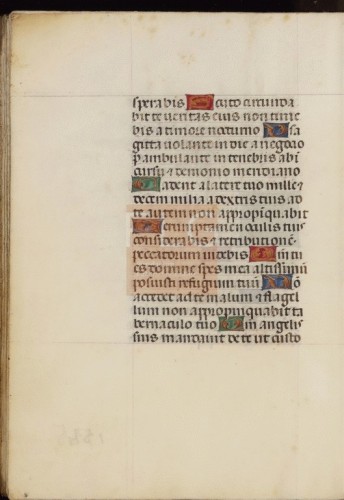 sperabis Scuto circunda
bit te veritas eius non time
bis a timore nocturno A sa
gitta volante in die a negocio
perambulante in tenebris ab in
cursu & demonio meridiano
Cadent a latere tuo mille &
decem milia a dextris tuis ad
te autem non appropinquabit
Verumptamen oculis tuis
considerabis & retributionem
peccatorum videbis Quoniam tu
es domine spes mea altissimum
posuisti refugium tuum Non
accedet ad te malum & flagel
lum non appropinquabit ta
bernaculo tuo Quoniam angelis
suis mandavit de te ut custo